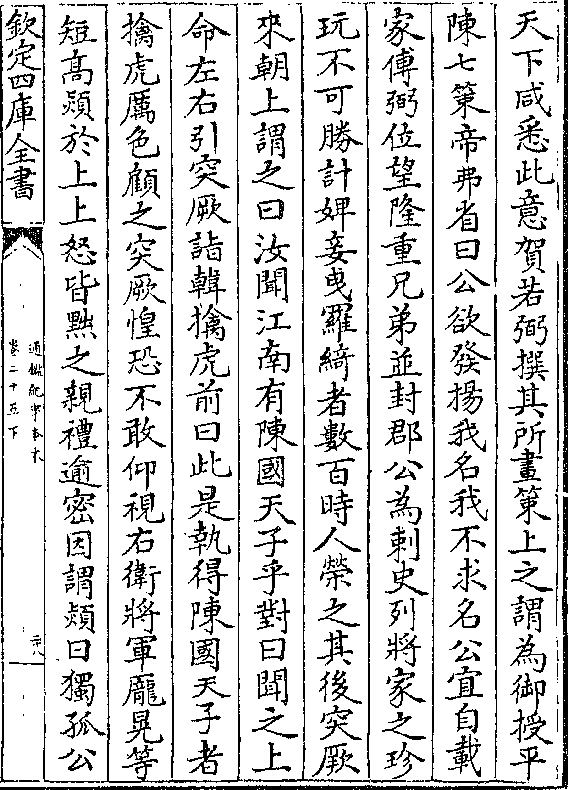 天下咸悉此意賀若弼撰其所畫策上之謂為御授平
陳七策帝弗省曰公欲發揚我名我不求名公宜自載
家傳弼位望隆重兄弟並封郡公為刺史列將家之珍
玩不可勝計婢妾曵羅綺者數百時人榮之其後突厥
來朝上謂之曰汝聞江南有陳國天子乎對曰聞之上
命左右引突厥詣韓擒虎前曰此是執得陳國天子者
擒虎厲色顧之突厥惶恐不敢仰視右衛將軍龎晃等
短髙熲於上上怒皆黜之親禮逾密因謂熲曰獨孤公
欽定四庫全書
通鑑紀事本末
卷二十五下
二十八